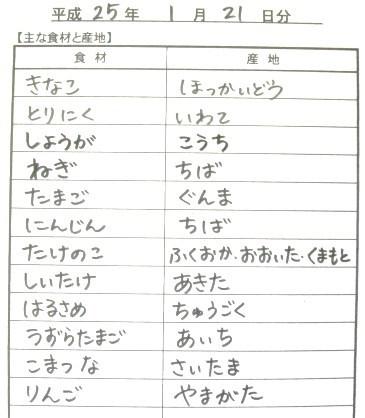 平成 25 年 1 月 21 日分
【主な食材と産地】
食材 産地
きなこ ほっかいどう
とりにく いわて
しょうが こうち
ねぎ ちば
たまご ぐんま
にんじん ちば
たけのこ ふくおか・おおいた・くまもと
しいたけ あきた
はるさめ ちゅうごく
うずらたまご あいち
こまつな さいたま
りんご やまがた